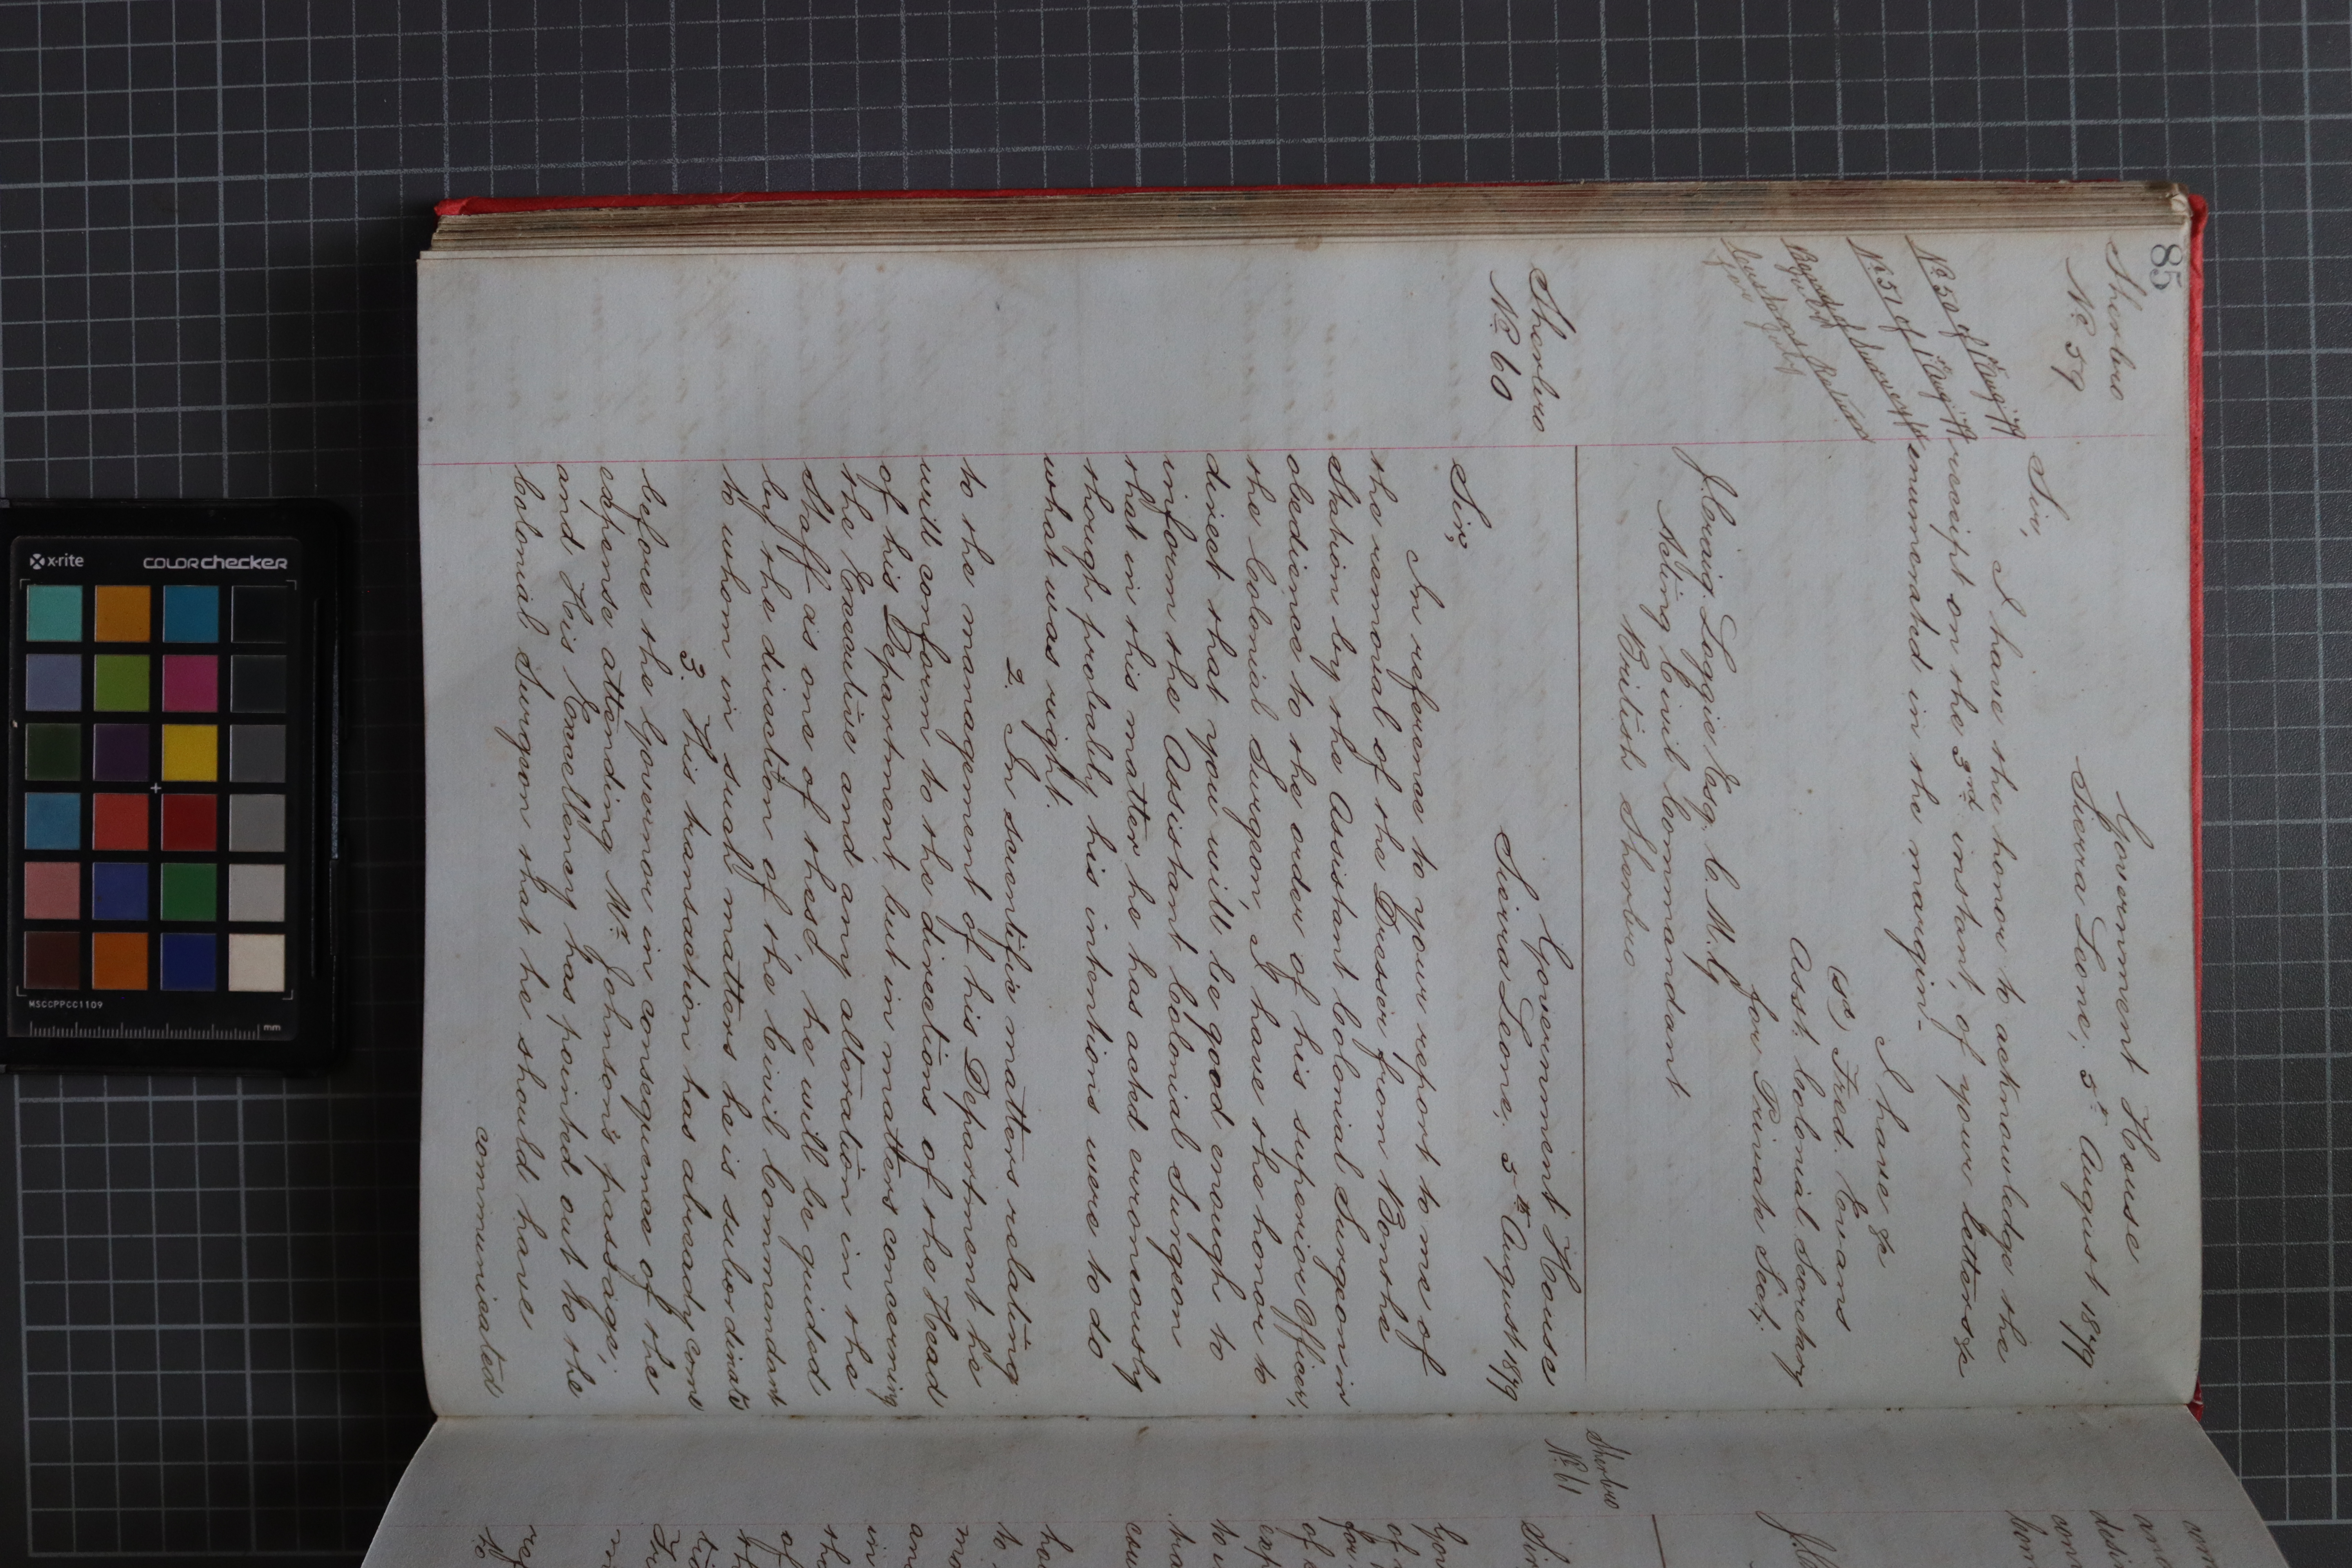 85
Sherbro
No 59
Government House
Sierra Leone, 5th August 1879
Sir,
I have the honor to acknowledge the
receipt on the 3rd instant, of your letters &c
enumerated in the margin.
No 50 of 1 Aug/79
No 51 of 1 Aug/79
I have &c
(sd) Fred. Evans
Asst. Colonial Secretary
for Private Secty.
J. Craig Loggie Esq. C.M.G
Acting Civil Commandant
British Sherbro
Sherbro
No 60
Government House
Sierra Leone, 5th August 1879
Sir,
In reference to your report to me of
the removal of the Dresser from Bonthe
Station by the Assistant Colonial Surgeon in
obedience to the order of his superior Officer,
the Colonial Surgeon, I have the honor to
direct that you will be good enough to
inform the Assistant Colonial Surgeon
that in this matter he has acted erroneously
though probably his intentions were to do
what was right.
2. In scientific matters relating
to the management of his Department he
will conform to the directions of the Head
of his Department, but in matters concerning
the Executive and any alteration in the
Staff as one of these, he will be guided
by the direction of the Civil Commandant
to whom in such matters he is subordinate
3. This transaction has already come
before the Governor in consequence of the
expense attending Mr Johnson's passage,
and His Excellency has pointed out to the
Colonial Surgeon that he should have
communicated
Sherbro
No 61